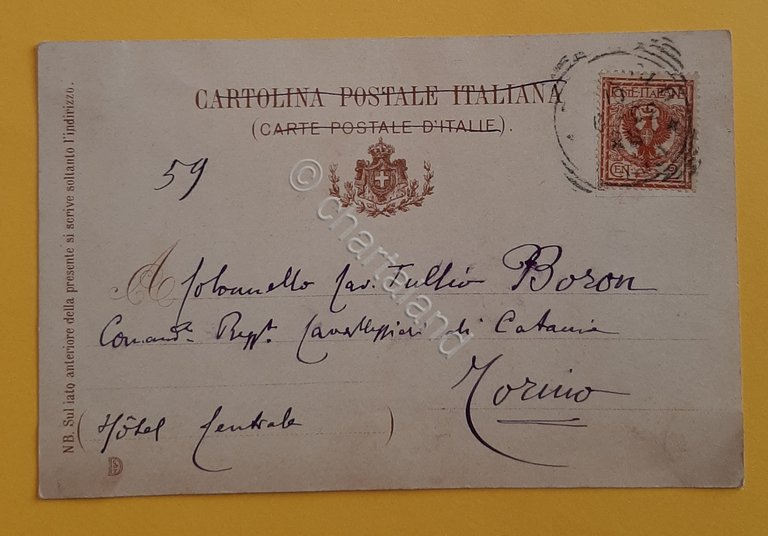 CARTOLINA POSTALE ITALIANA
(CARTE POSTALE D'ITALIE).
POSTE ITALIANE
CENT. 2
59
A Colonnello Cav. Tullio Boron
Comand.te Regg.to Cavalleggieri di Catania
Torino
(Hôtel Centrale)
NB. Sul lato anteriore della presente si scrive soltanto l'indirizzo.
© chartaland